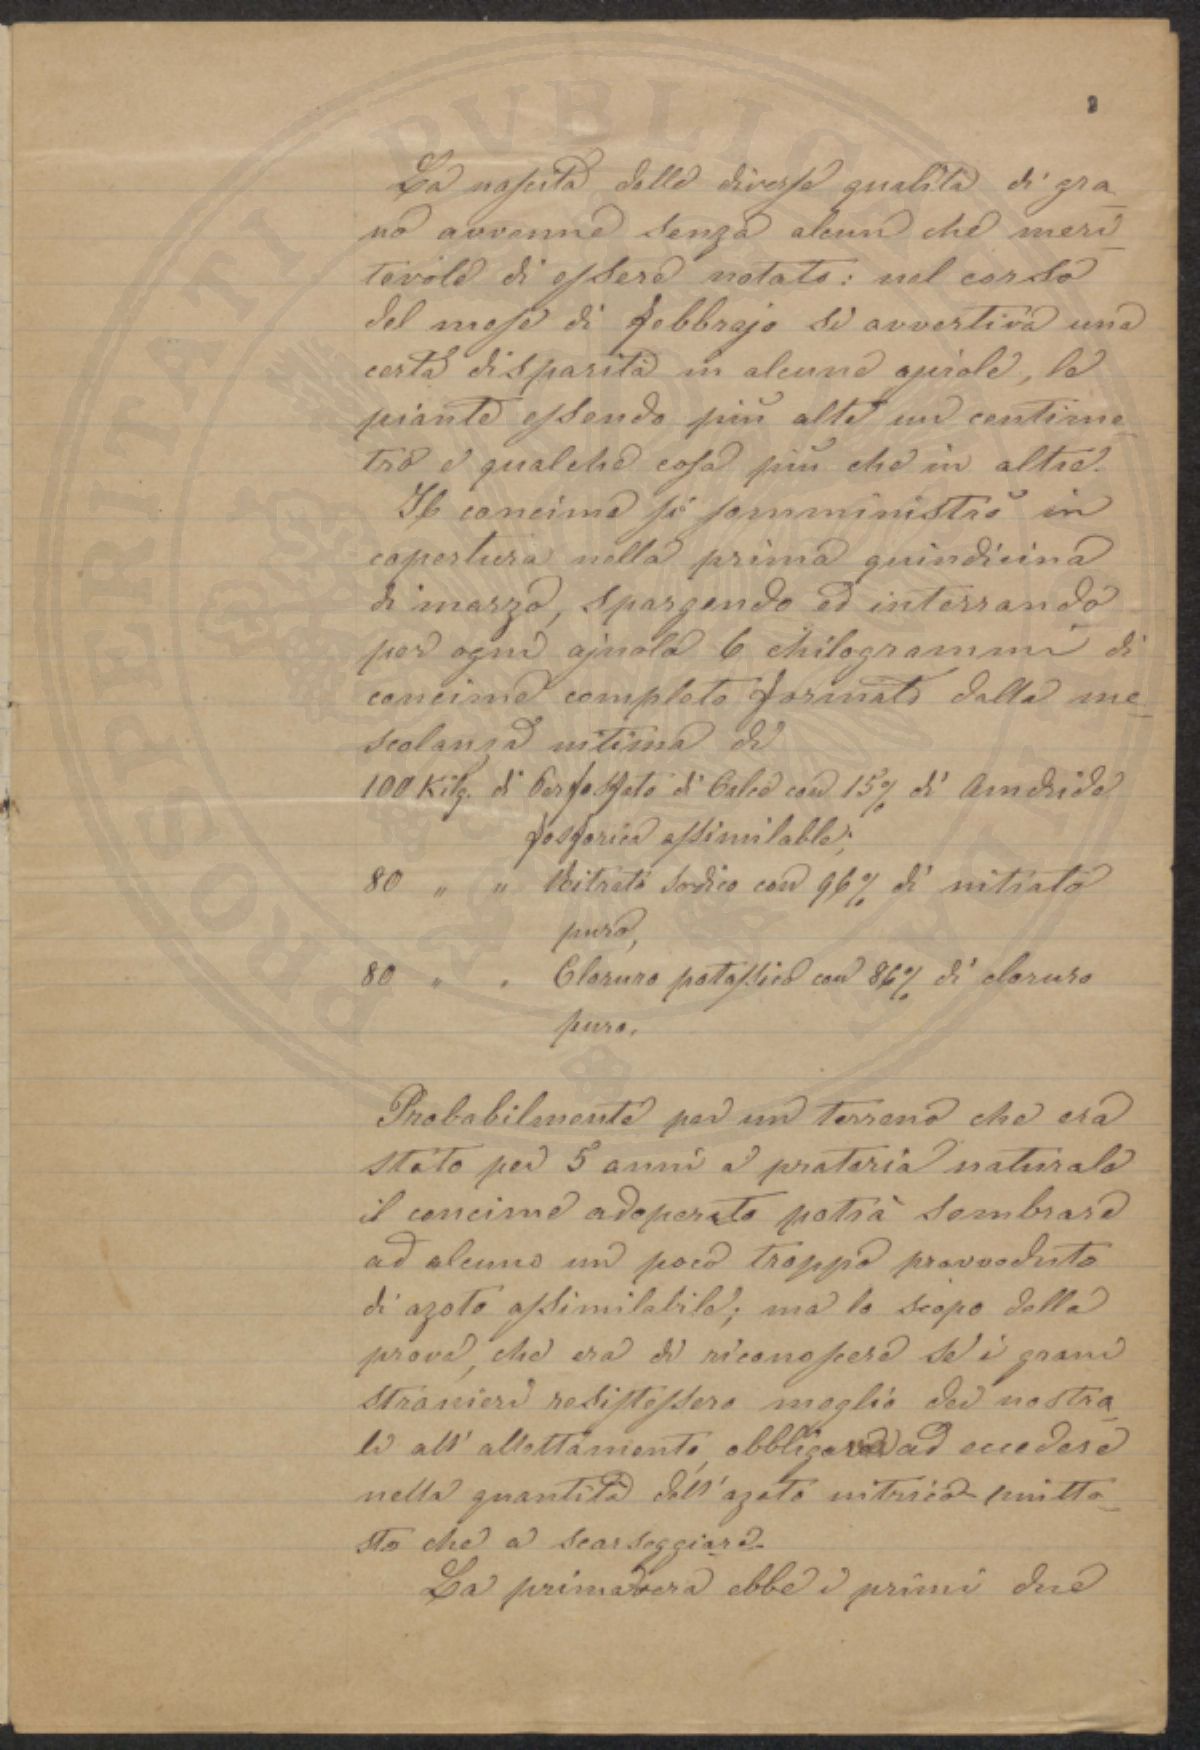 2
La nascita delle diverse qualità di gra-
no avvenne senza alcun che meri-
tevole di essere notato: nel corso
del mese di febbrajo si avvertiva una
certa disparità in alcune ajuole, le
piante essendo più alte un centime-
tro e qualche cosa più che in altre.
Il concime si somministrò in
copertura nella prima quindicina
di marzo, spargendo ed interrando
per ogni ajuola 6 chilogrammi di
concime completo formato dalla me-
scolanza intima di
100 Kilg. di Perfosfato di Calce con 15% di Anidride
fosforica assimilable;
80 " " Nitrato sodico con 96% di nitrato
puro,
80 " " Cloruro potassico con 86% di cloruro
puro.
Probabilmente per un terreno che era
stato per 5 anni a prateria naturale
il concime adoperato potrà sembrare
ad alcuno un poco troppo provveduto
di azoto assimilabile; ma lo scopo della
prova, che era di riconoscere se i grani
stranieri resistessero meglio dei nostra-
li all'allettamento, obbligava ad eccedere
nella quantità dell'azoto nitrico piutto-
sto che a scarseggiare.
La primavera ebbe i primi due
PROSPERITATI PVBLICAE